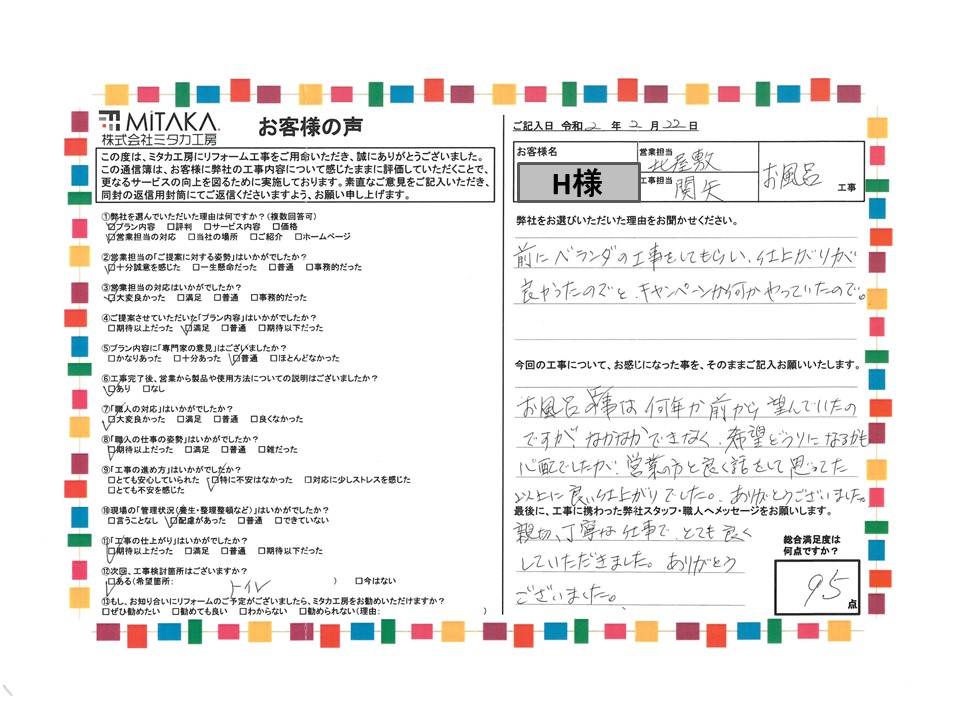 MiTAKA.
株式会社ミタカ工房
お客様の声
この度は、ミタカ工房にリフォーム工事をご用命いただき、誠にありがとうございました。
この通信簿は、お客様に弊社の工事内容について感じたままに評価していただくことで、
更なるサービスの向上を図るために実施しております。素直なご意見をご記入いただき、
同封の返信用封筒にてご返信くださいますよう、お願い申し上げます。
①弊社を選んでいただいた理由は何ですか?(複数回答可)
□プラン内容 □評判 □サービス内容 □価格
□営業担当の対応 □当社の場所 □ご紹介 □ホームページ
②営業担当の「ご提案に対する姿勢」はいかがでしたか?
□十分誠意を感じた □一生懸命だった □普通 □事務的だった
③営業担当の対応はいかがでしたか?
□大変良かった □満足 □普通 □事務的だった
④ご提案させていただいた「プラン内容」はいかがでしたか?
□期待以上だった □満足 □普通 □期待以下だった
⑤プラン内容に「専門家の意見」はございましたか?
□かなりあった □十分あった □普通 □ほとんどなかった
⑥工事完了後、営業から製品や使用方法についての説明はございましたか?
□あり □なし
⑦「職人の対応」はいかがでしたか?
□大変良かった □満足 □普通 □良くなかった
⑧「職人の仕事の姿勢」はいかがでしたか?
□期待以上だった □満足 □普通 □雑だった
⑨「工事の進め方」はいかがでしたか?
□とても安心していられた □特に不安はなかった □対応に少しストレスを感じた
□とても不安を感じた
⑩現場の「管理状況(養生・整理整頓など)」はいかがでしたか?
□言うことなし □配慮があった □普通 □できていない
⑪「工事の仕上がり」はいかがでしたか?
□期待以上だった □満足 □普通 □期待以下だった
⑫次回、工事検討箇所はございますか?
□ある(希望箇所: トイレ ) □今はない
⑬もし、お知り合いにリフォームのご予定がございましたら、ミタカ工房をお勧めいただけますか?
□ぜひ勧めたい □勧めても良い □わからない □勧められない(理由: )
ご記入日 令和2年2月22日
お客様名
H様
営業担当
北屋敷
工事担当
関矢
お風呂 工事
弊社をお選びいただいた理由をお聞かせください。
前にベランダの工事をしてもらい、仕上がりが
良かったのでと、キャンペーンか何かやっていたので。
今回の工事について、お感じになった事を、そのままご記入お願いいたします。
お風呂の事は何年か前から望んでいたの
ですが、なかなかできなく、希望どうりになるかも
心配でしたが、営業の方と良く話をして思ってた
以上に良い仕上がりでした。ありがとうございました。
最後に、工事に携わった弊社スタッフ・職人へメッセージをお願いします。
親切、丁寧な仕事で、とても良く
していただきました。ありがとう
ございました。
総合満足度は
何点ですか?
95点